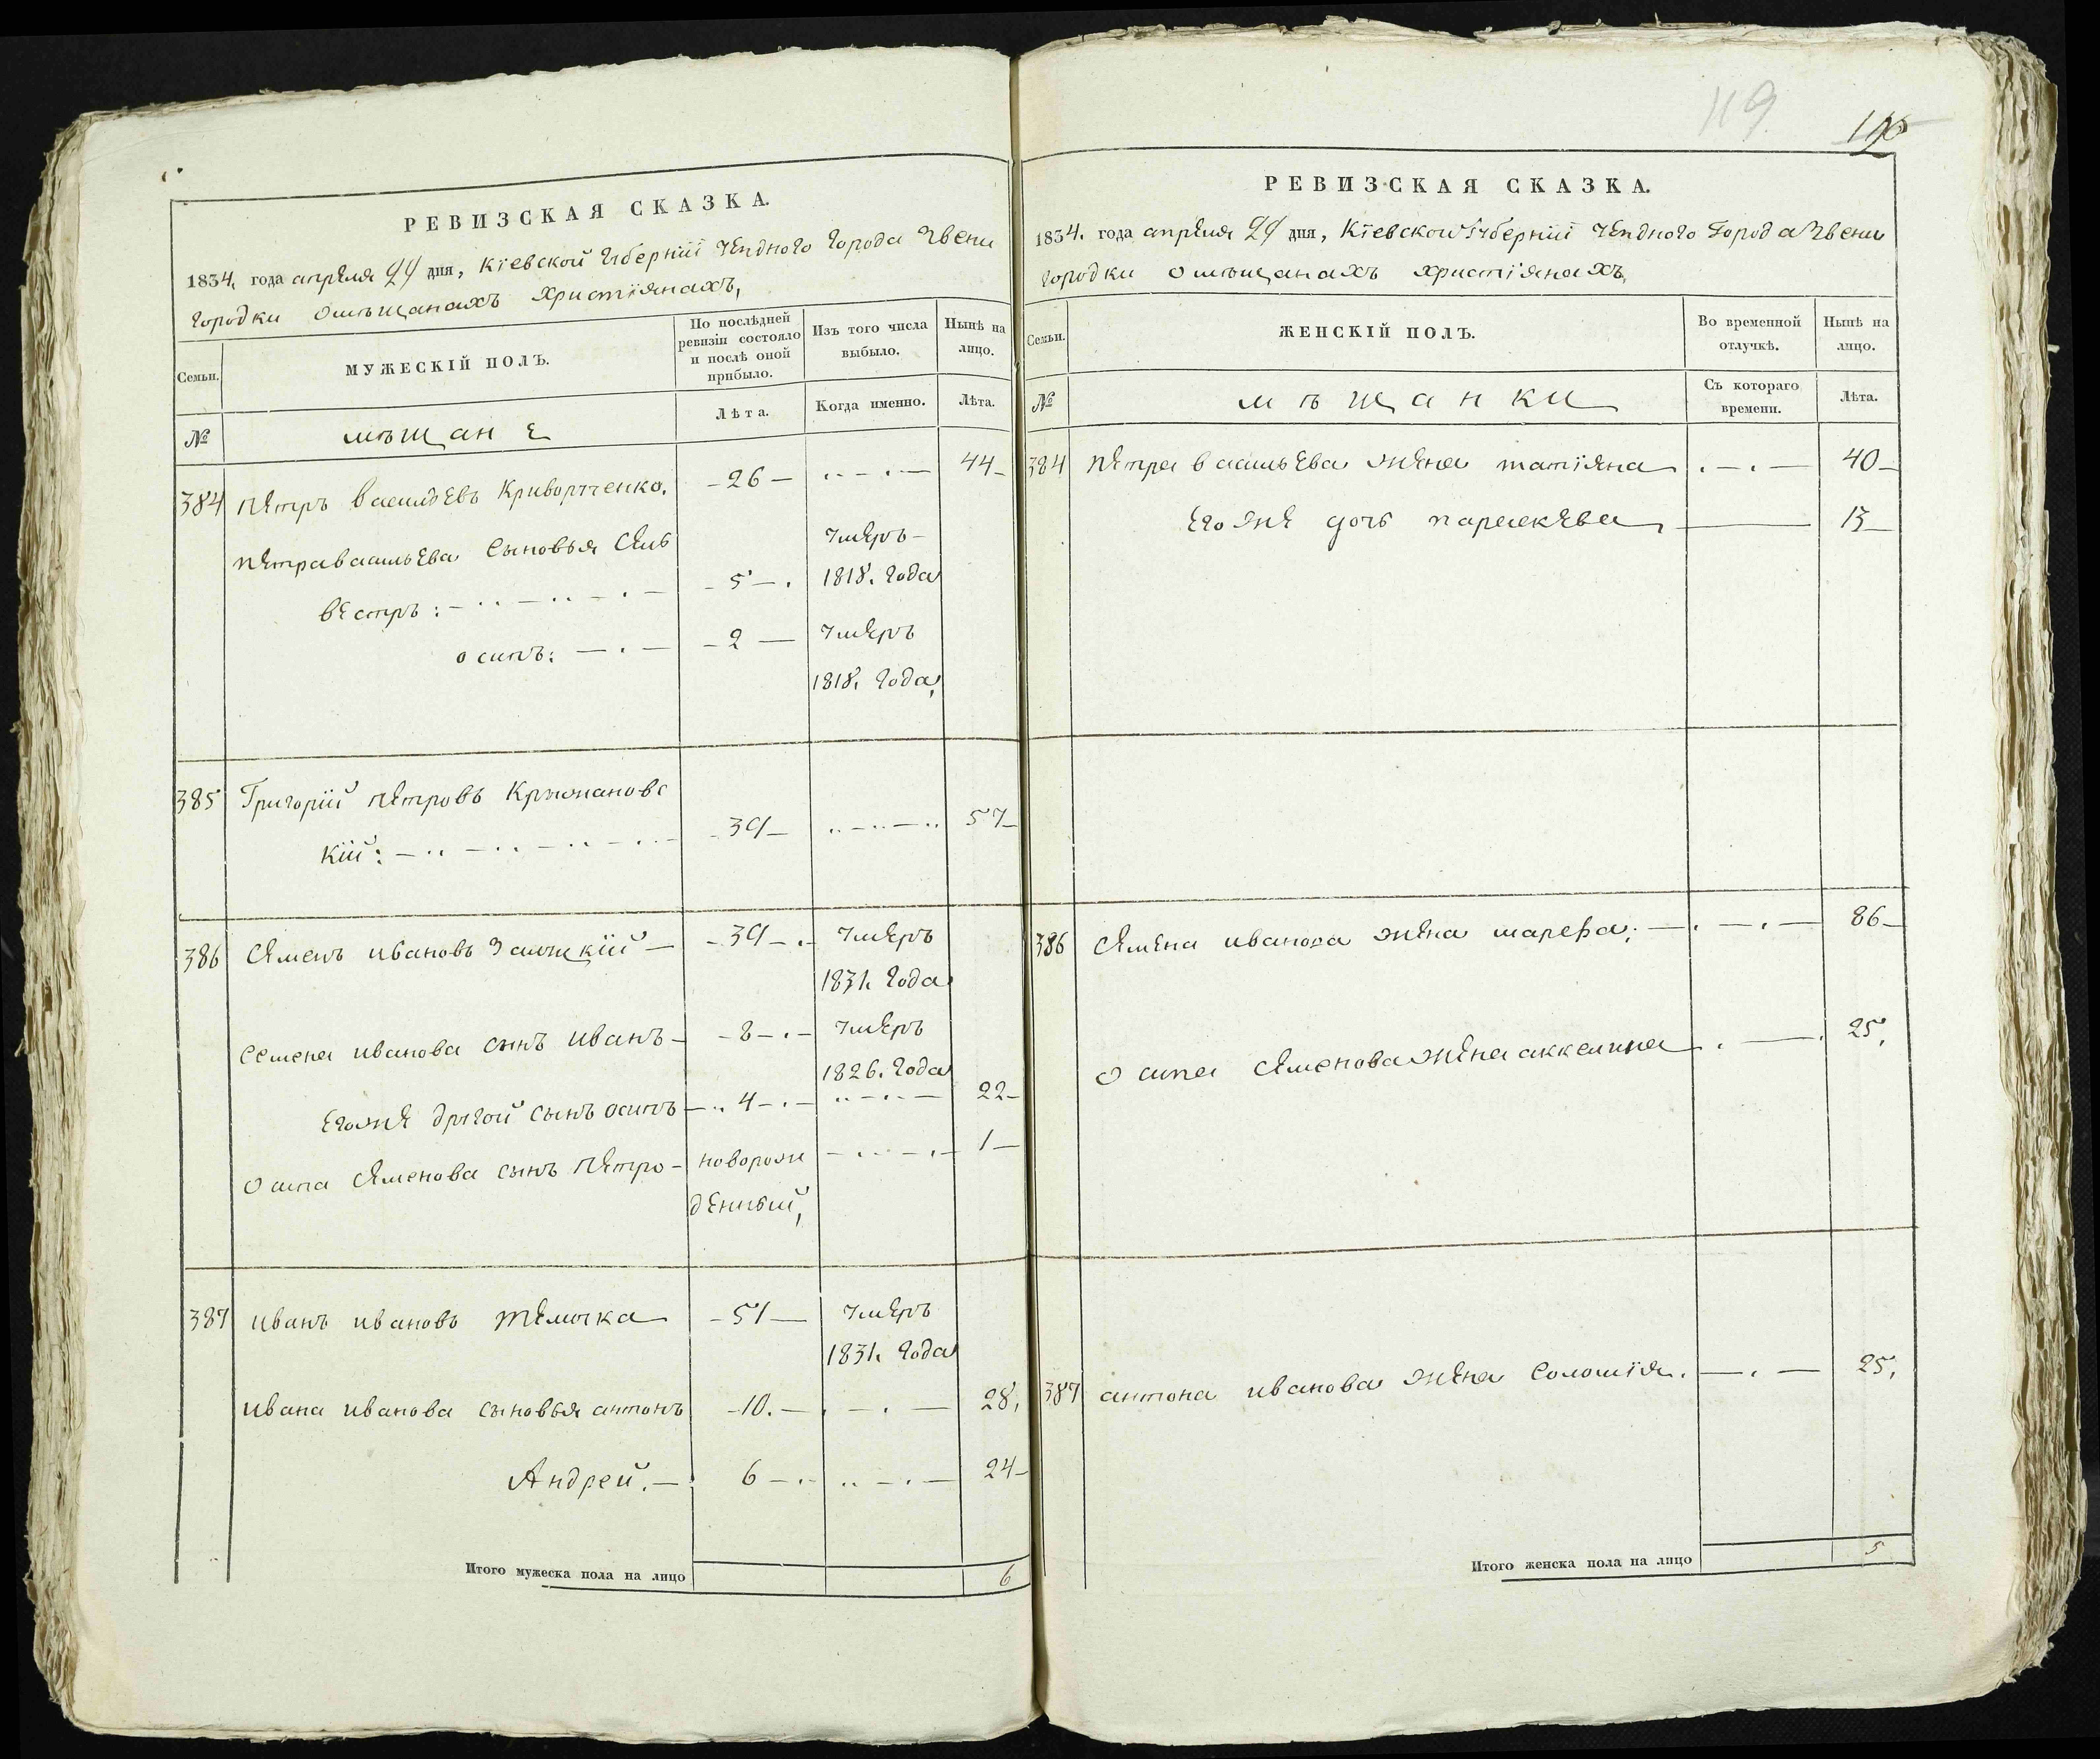 РЕВИЗСКАЯ СКАЗКА.
1834, года апреля 24 дня, Кіевской Губерніи уезднаго города Звени
городки о мѣщанахъ христіянахъ,
Семьи.
МУЖЕСКІЙ ПОЛЪ.
По послѣдней ревизіи состояло и послѣ оной прибыло.
Изъ того числа выбыло.
Нынѣ на лицо.
№
мѣщане
Лѣта.
Когда именно.
Лѣта.
384 петръ васильевъ Криворученко. -26- 44-
петра васильева сыновья сель умеръ-
вестръ: -5-. 1818. года
осипъ: -2- умеръ
1818. года,
385 Григорій петровъ Крыжановс
кій: -39- 57-
386 семенъ ивановъ -39-.- умеръ
1831. года
семена иванова сынъ иванъ- -8-.- умеръ
1826. года
егоже другой сынъ осипъ 4-.- 22-
осипа семенова сынъ петро- новорож 1-
денный,
387 иванъ ивановъ телючка -51- умеръ
1831. года
ивана иванова сыновья антонъ -10.- 28,
Андрей.- 6-.- 24-
Итого мужеска пола на лицо 6
119.
РЕВИЗСКАЯ СКАЗКА.
1834. года апреля 24 дня, Кіевской Губерніи уезднаго города Звени
городки о мѣщанахъ христіянахъ,
Семьи.
ЖЕНСКІЙ ПОЛЪ.
Во временной отлучкѣ.
Нынѣ на лицо.
№
мѣщанки
Съ котораго времени.
Лѣта.
384 петра васильева жена татіяна 40-
егоже дочь параскева 13-
386 семена иванова жена марефа; 86-
осипа семенова жена аккелина 25,
387 антона иванова жена соломія. 25,
Итого женска пола на лицо 5